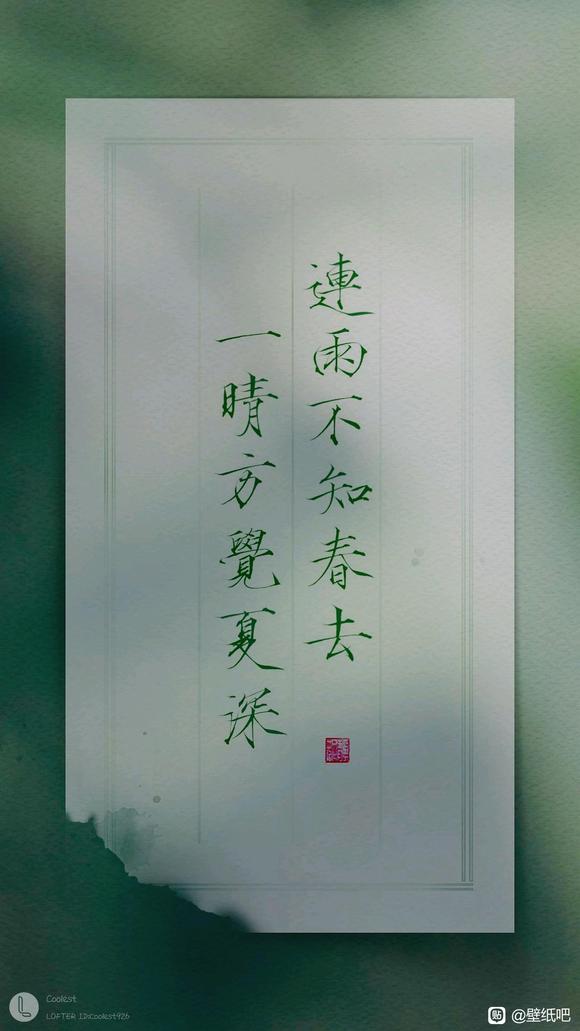 連雨不知春去
一晴方覺夏深
Coolest
LOFTER ID:Coolest926
貼 @壁纸吧